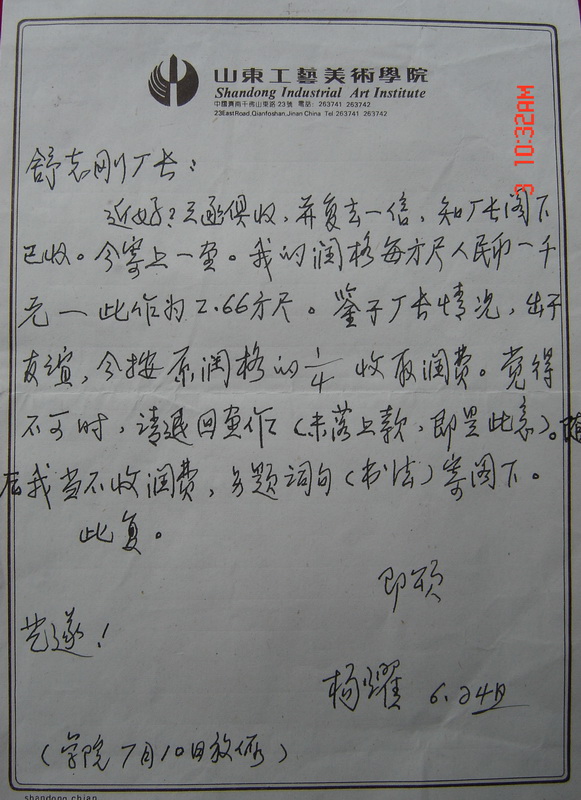 山東工藝美術學院
Shandong Industrial Art Institute
中國濟南千佛山東路23號 電話: 263741 263742
23EastRoad,Qianfoshan,Jinan China Tel 263741 263742
10:32AM
舒志刚厂长:
近好!三函俱收,并复去一信,知厂长阁下
已收。今寄上一画。我的润格每方尺人民币一千
元一此作为2.66方尺。鉴于厂长情况,出于
友谊,今按原润格的1/4收取润费。觉得
不可时,请退回画作(未落上款,即是此意)。
后我当不收润费,另题词句(书法)寄阁下。
此复。
即颂
艺邃!
杨耀 6.24日
(学院7月10日放假)
shandong chian